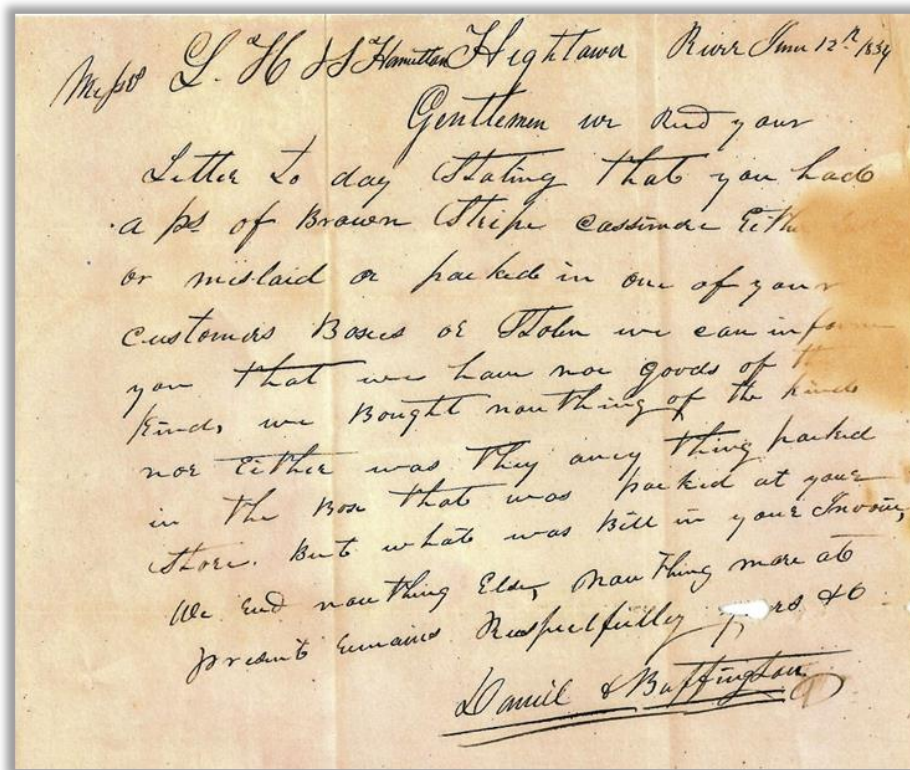 Messrs L. H & S Hamilton Hightower River June 12th 1834
Gentlemen we Recd your
Letter to day Stating that you had
a ps of Brown Stripe cassimere Eithe
or mislaid or packed in one of your
customers Boxes or Stolen we can inform
you that we have noe goods of th
Kind, we Bought nouthing of the kind
nor Either was they aney thing packed
in the Box that was packed at your
Store. But what was Bill in your Invoice,
We nouthing Else, Nouthing more at
present Remains Respectfully yrs &c
Daniel & Buffington